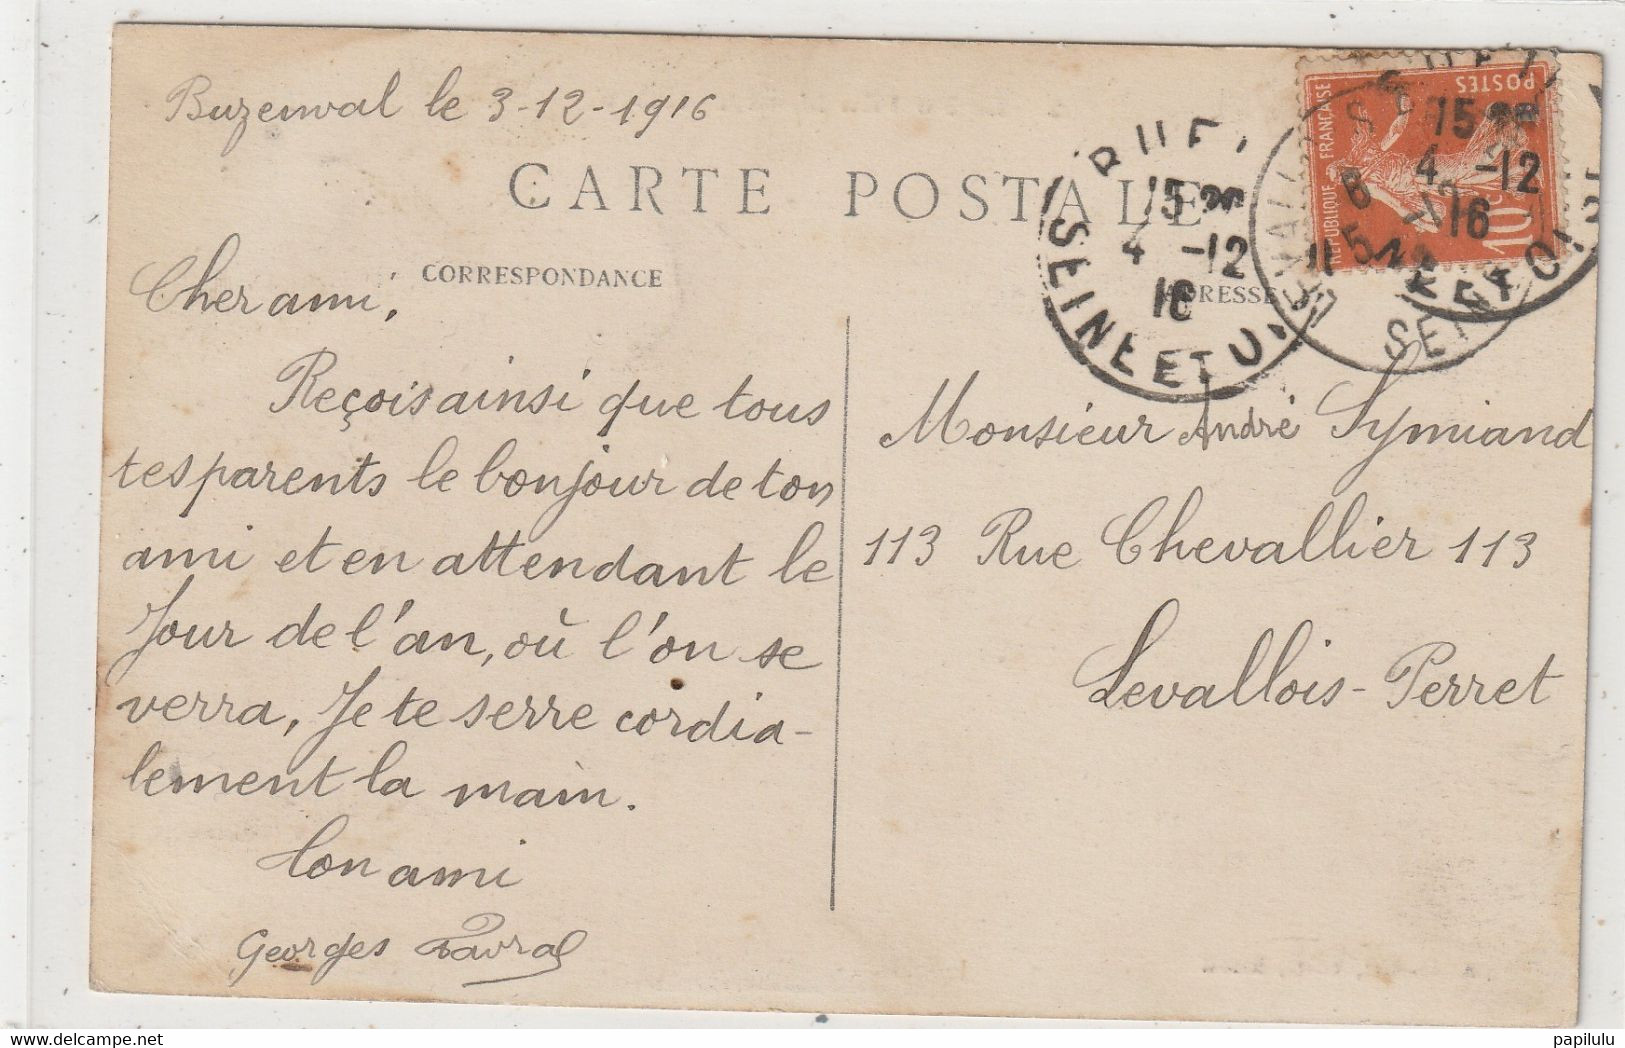 Buzenval le 3-12-1916
CARTE POSTALE
CORRESPONDANCE
ADRESSE
POSTES
REPUBLIQUE FRANÇAISE
10c
RUEIL
15
4 -12
16
SEINE ET OISE
15
4 -12
16
SEINE
Cher ami,
Reçois ainsi que tous
tes parents le bonjour de ton
ami et en attendant le
Jour de l'an, où l'on se
verra, Je te serre cordia-
lement la main.
Ton ami
Georges
Monsieur André Symiand
113 Rue Chevallier 113
Levallois-Perret
www.delcampe.net
papilulu